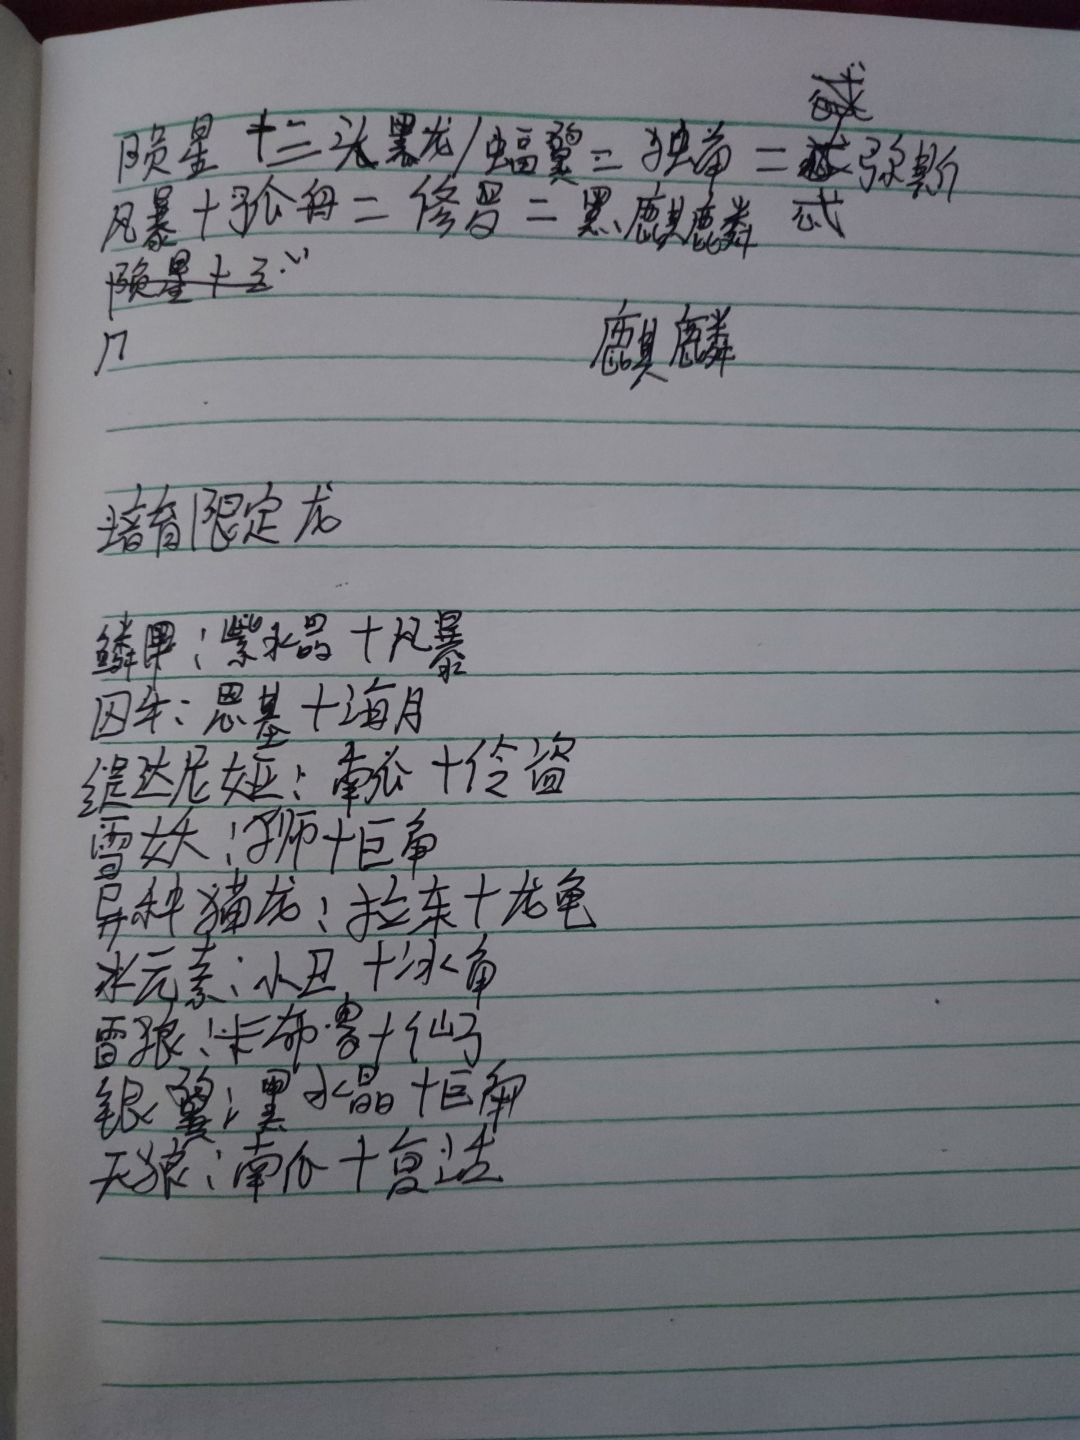 陨星十二头黑龙/蝠翼=独角=弥斯
式
风暴+孤舟=修罗=黑麒麟
陨星+
麒麟
培育限定龙
鳞甲:紫水晶+风暴
囚牛:恩基+海月
缇达尼娅:南瓜+伶盗
雪妖:狮+巨角
异种猫龙:拉东+龙龟
冰元素:小丑+冰角
雷狼:卡布+仙子
银翼:黑水晶+巨角
天狼:南瓜+复活